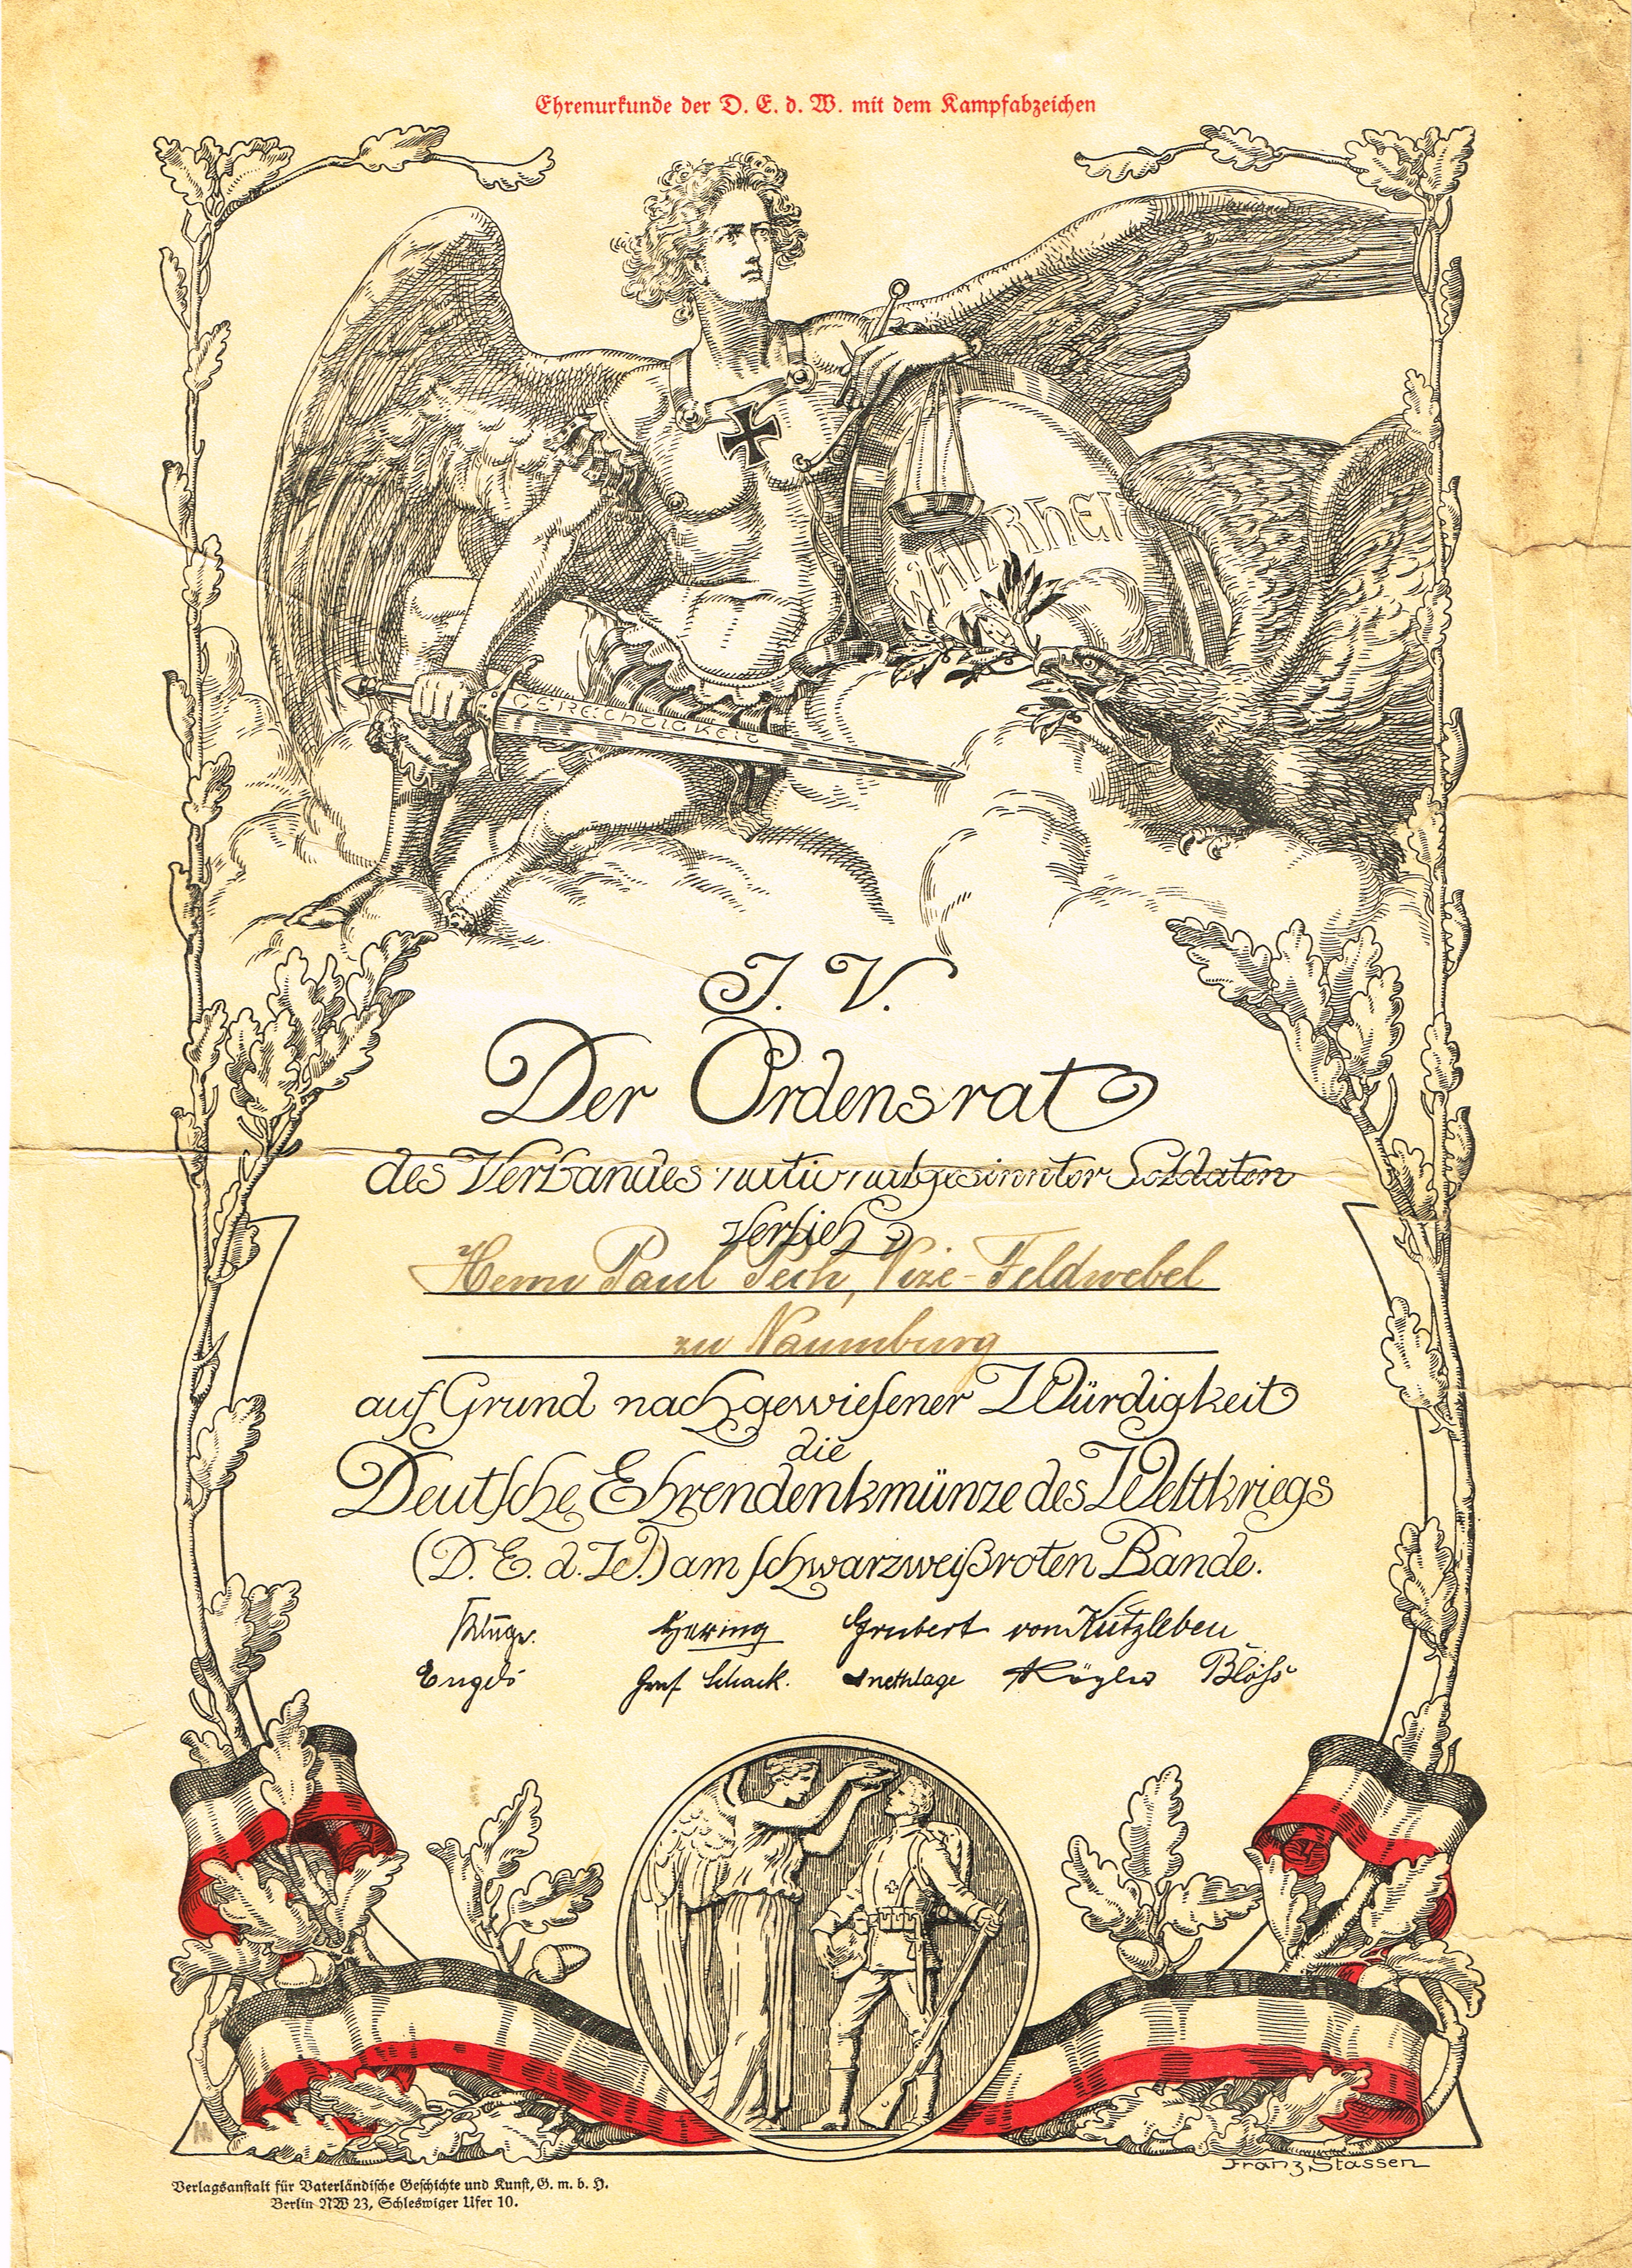 Ehrenurkunde der D. E. d. W. mit dem Kampfabzeichen
WAHRHEIT
GERECHTIGKEIT
I. V.
Der Ordensrat
des Verbandes nationalgesinnter Soldaten
verlieh
Herrn Paul Pech, Vize-Feldwebel
zu Naumburg
auf Grund nachgewiesener Würdigkeit
die
Deutsche Ehrendenkmünze des Weltkriegs
(D. E. d. W.) am schwarzweißroten Bande.
Kluge. Hering Grubert von Kutzleben
Engels Graf Schack. Knethlage Kögler Blöß
Franz Stassen
Verlagsanstalt für Vaterländische Geschichte und Kunst, G. m. b. H.
Berlin NW 23, Schleswiger Ufer 10.